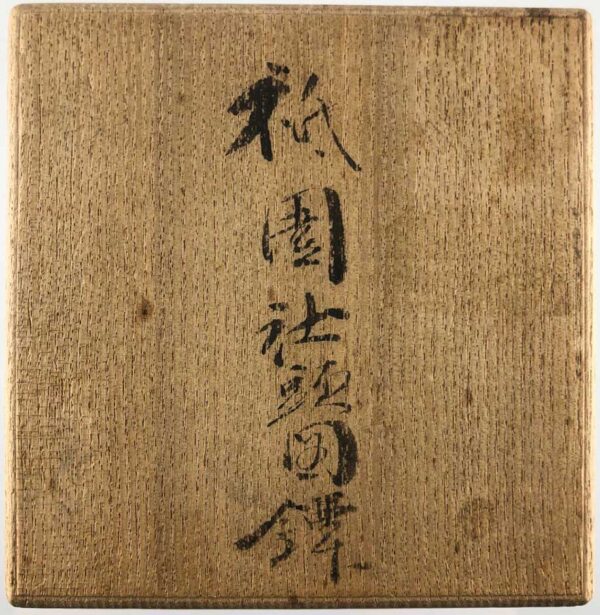 祗園社頭図鐔